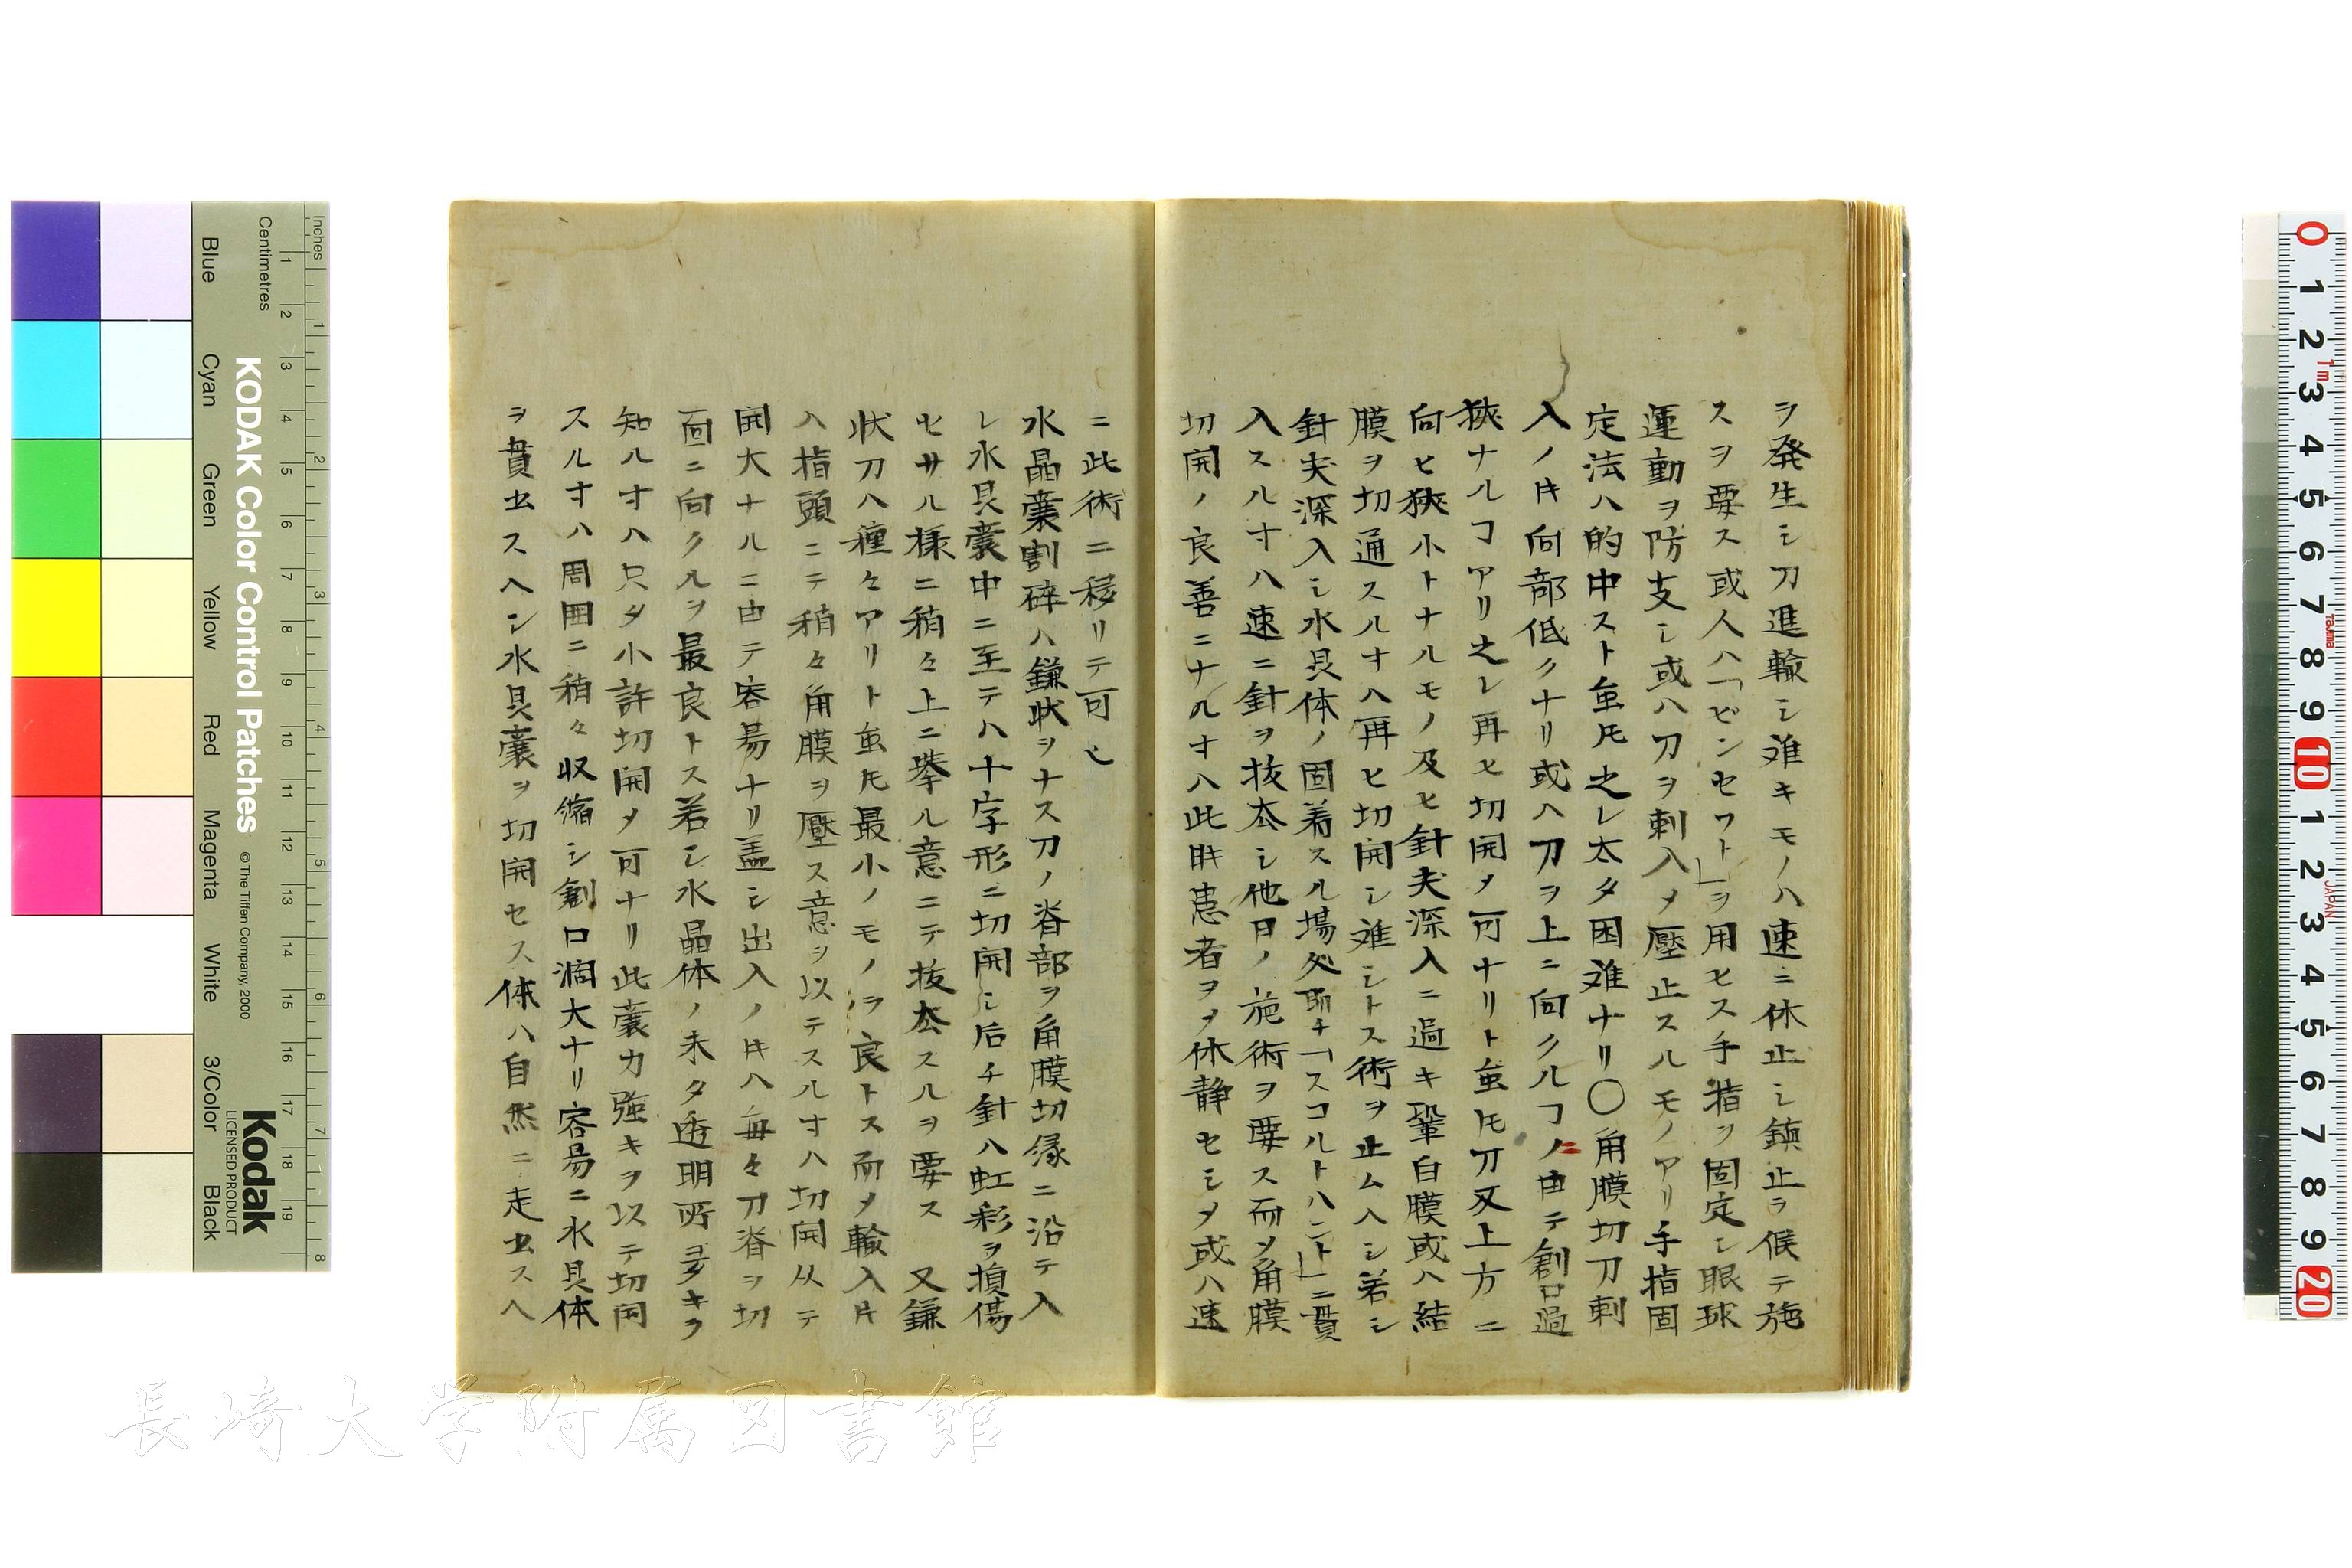 ヲ発生シ刀進輸シ難キモノハ速ニ休止シ鎮止ヲ候テ施
スヲ要ス或人ハ「ピンセツト」ヲ用セス手指ヲ固定シ眼球
運動ヲ防支シ或ハ刀ヲ刺入〆壓止スルモノアリ手指固
定法ハ的中スト虽𪜈之レ太タ困難ナリ〇角膜切刀刺
入ノ片向部低クナリ或ハ刀ヲ上ニ向クルヿニ由テ創口過
狹ナルヿアリ之レ再ヒ切開〆可ナリト虽𪜈刀又上方ニ
向ヒ狹小トナルモノ及ヒ針尖深入ニ過キ鞏白膜或ハ結
膜ヲ切通スル寸ハ再ヒ切開シ難シトス術ヲ止ムヘシ若シ
針尖深入シ水具体ノ固着スル場処即チ「スコルトハント」ニ貫
入スル寸ハ速ニ針ヲ抜去シ他日ノ施術ヲ要ス而〆角膜
切開ノ良善ニナル寸ハ此時患者ヲ〆休静セシメ或ハ速
ニ此術ニ移リテ可也
水晶嚢割碎ハ鎌状ヲナス刀ノ脊部ヲ角膜切縁ニ沿テ入
レ水具嚢中ニ至テハ十字形ニ切開シ后チ針ハ虹彩ヲ損傷
セサル様ニ稍々上ニ挙ル意ニテ抜去スルヲ要ス 又鎌
状刀ハ種々アリト虽𪜈最小ノモノヲ良トス而〆輸入片
ハ指頭ニテ稍々角膜ヲ壓ス意ヲ以テスル寸ハ切開从テ
開大ナルニ由テ容昜ナリ盖シ出入ノ片ハ毎々刀脊ヲ切
面ニ向クルヲ最良トス若シ水晶体ノ未タ透明所多キヲ
知ル寸ハ只タ小許切開〆可ナリ此嚢力強キヲ以テ切開
スル寸ハ周囲ニ稍々収縮シ創口濶大ナリ容昜ニ水具体
ヲ貫出スヘシ水具嚢ヲ切開セス体ハ自然ニ走出スヘ
長崎大学附属図書館
Inches
Centimetres
KODAK Color Control Patches
© The Tiffen Company, 2000
Kodak
LICENSED PRODUCT
Blue
Cyan
Green
Yellow
Red
Magenta
White
3/Color
Black
1 2 3 4 5 6 7 8
1 2 3 4 5 6 7 8 9 10 11 12 13 14 15 16 17 18 19
0 1 2 3 4 5 6 7 8 9 10 1 2 3 4 5 6 7 8 9 20
1m
Tajima
JAPAN